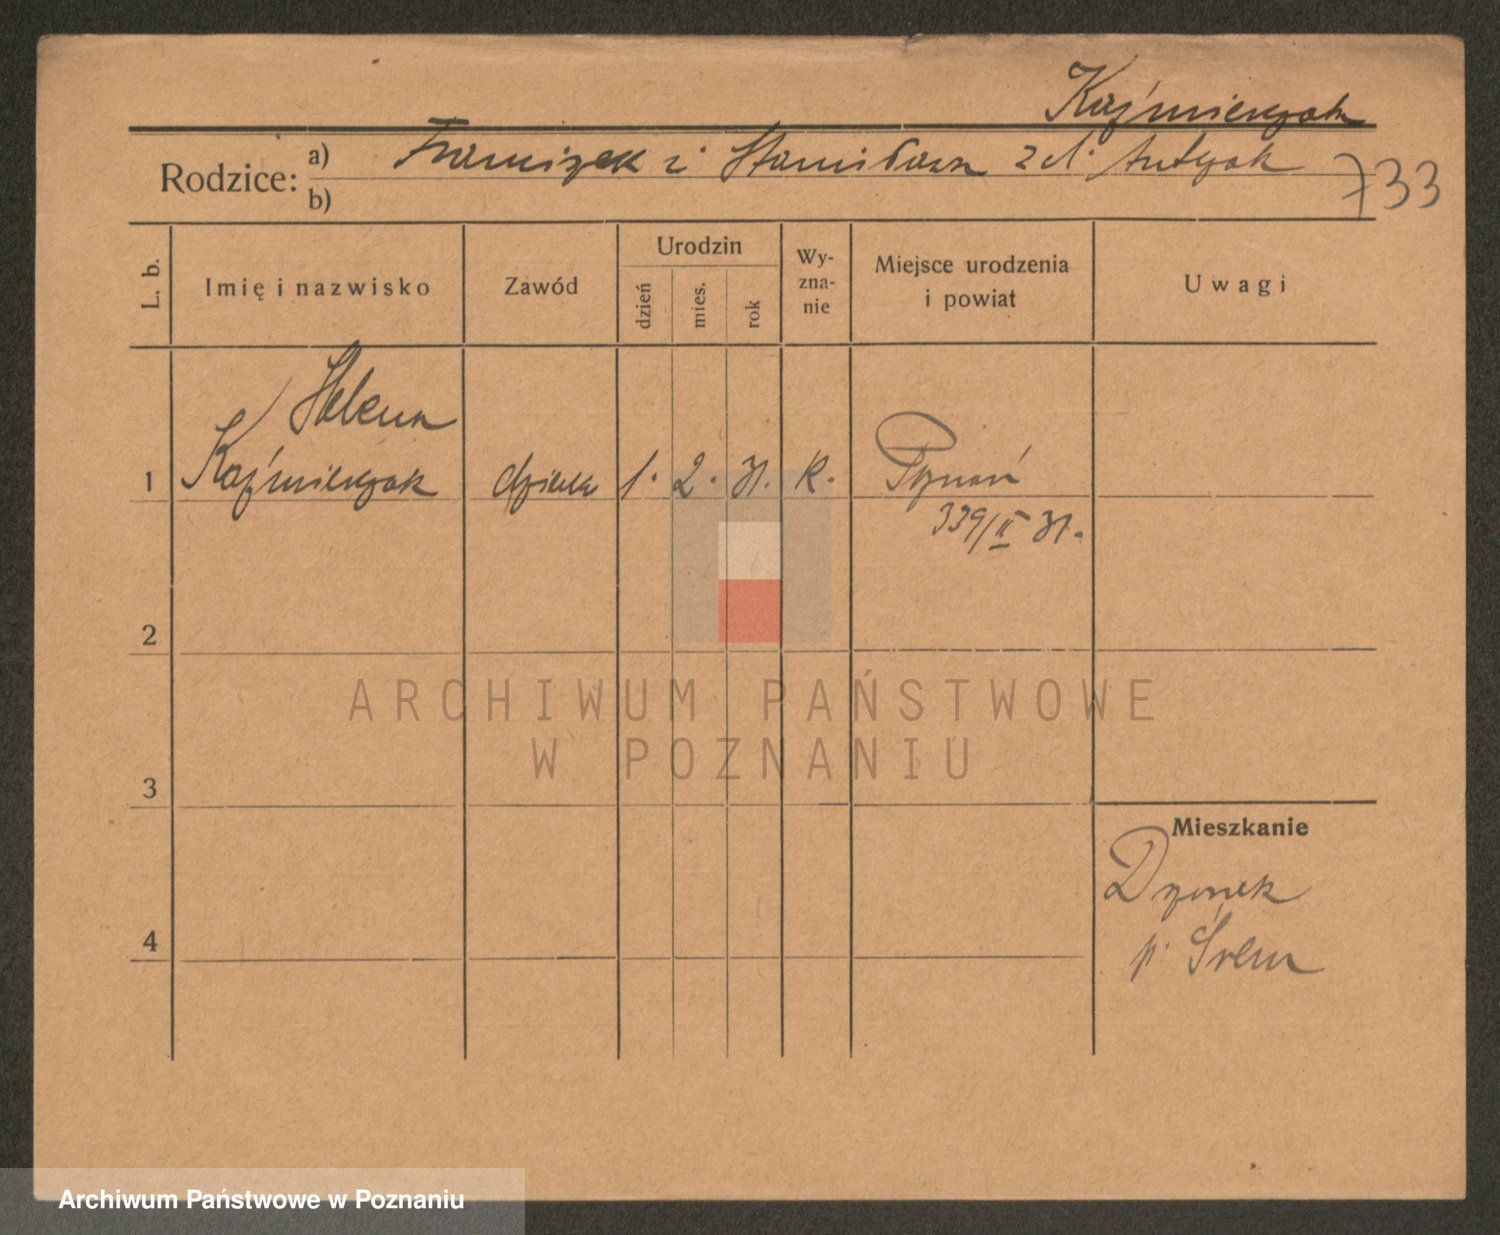 Kaźmierczak
Rodzice: a) Franciszek i Stanisława z d. Antczak
b)
733
L. b.
Imię i nazwisko
Zawód
Urodzin
dzień
mies.
rok
Wy-
zna-
nie
Miejsce urodzenia
i powiat
Uwagi
Helena
1 Kaźmierczak
1. 2. 31. k. Poznań
339/II 31.
2
3
4
Mieszkanie
p. Śrem
ARCHIWUM PAŃSTWOWE
W POZNANIU
Archiwum Państwowe w Poznaniu